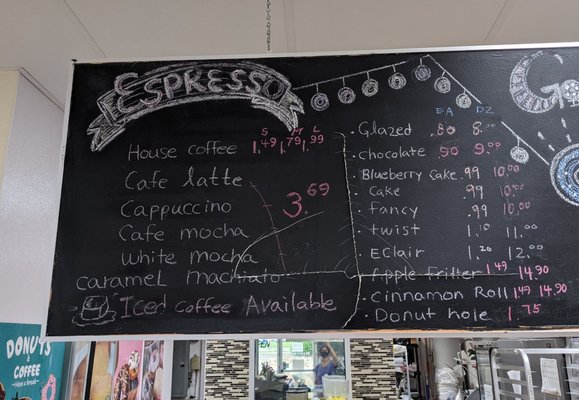 ESPRESSO
S M L
House coffee 1.49 1.79 1.99
Cafe latte
Cappuccino
Cafe mocha
white mocha
caramel machiato
3.69
Iced Coffee Available
EA DZ
• Glazed .80 8.00
• chocolate .90 9.00
• Blueberry Cake .99 10.00
• Cake .99 10.00
• fancy .99 10.00
• twist 1.10 11.00
• Eclair 1.20 12.00
• Apple Fritter 1.49 14.90
• Cinnamon Roll 1.49 14.90
• Donut hole 1.75
DONUTS
& COFFEE
Have a break